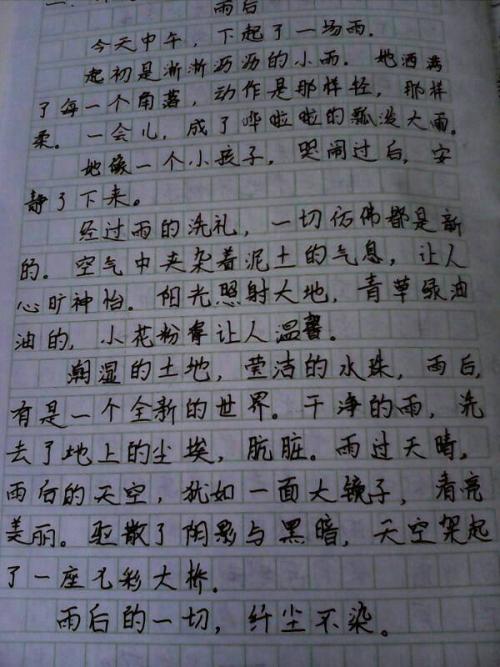 雨后
今天中午，下起了一场雨.
起初是淅淅沥沥的小雨. 她洒满
了每一个角落，动作是那样轻，那样
柔。一会儿，成了哗啦啦的瓢泼大雨。
她像一个小孩子，哭闹过后，安
静了下来。
经过雨的洗礼，一切仿佛都是新
的. 空气中夹杂着泥土的气息，让人
心旷神怡。阳光照射大地，青草绿油
油的，小花粉拿让人温馨。
潮湿的土地，莹洁的水珠，雨后，
有是一个全新的世界。干净的雨，洗
去了地上的尘埃，肮脏。雨过天晴，
雨后的天空，犹如一面大镜子，看亮
美丽。驱散了阴影与黑暗，天空架起
了一座七彩大桥.
雨后的一切，纤尘不染。